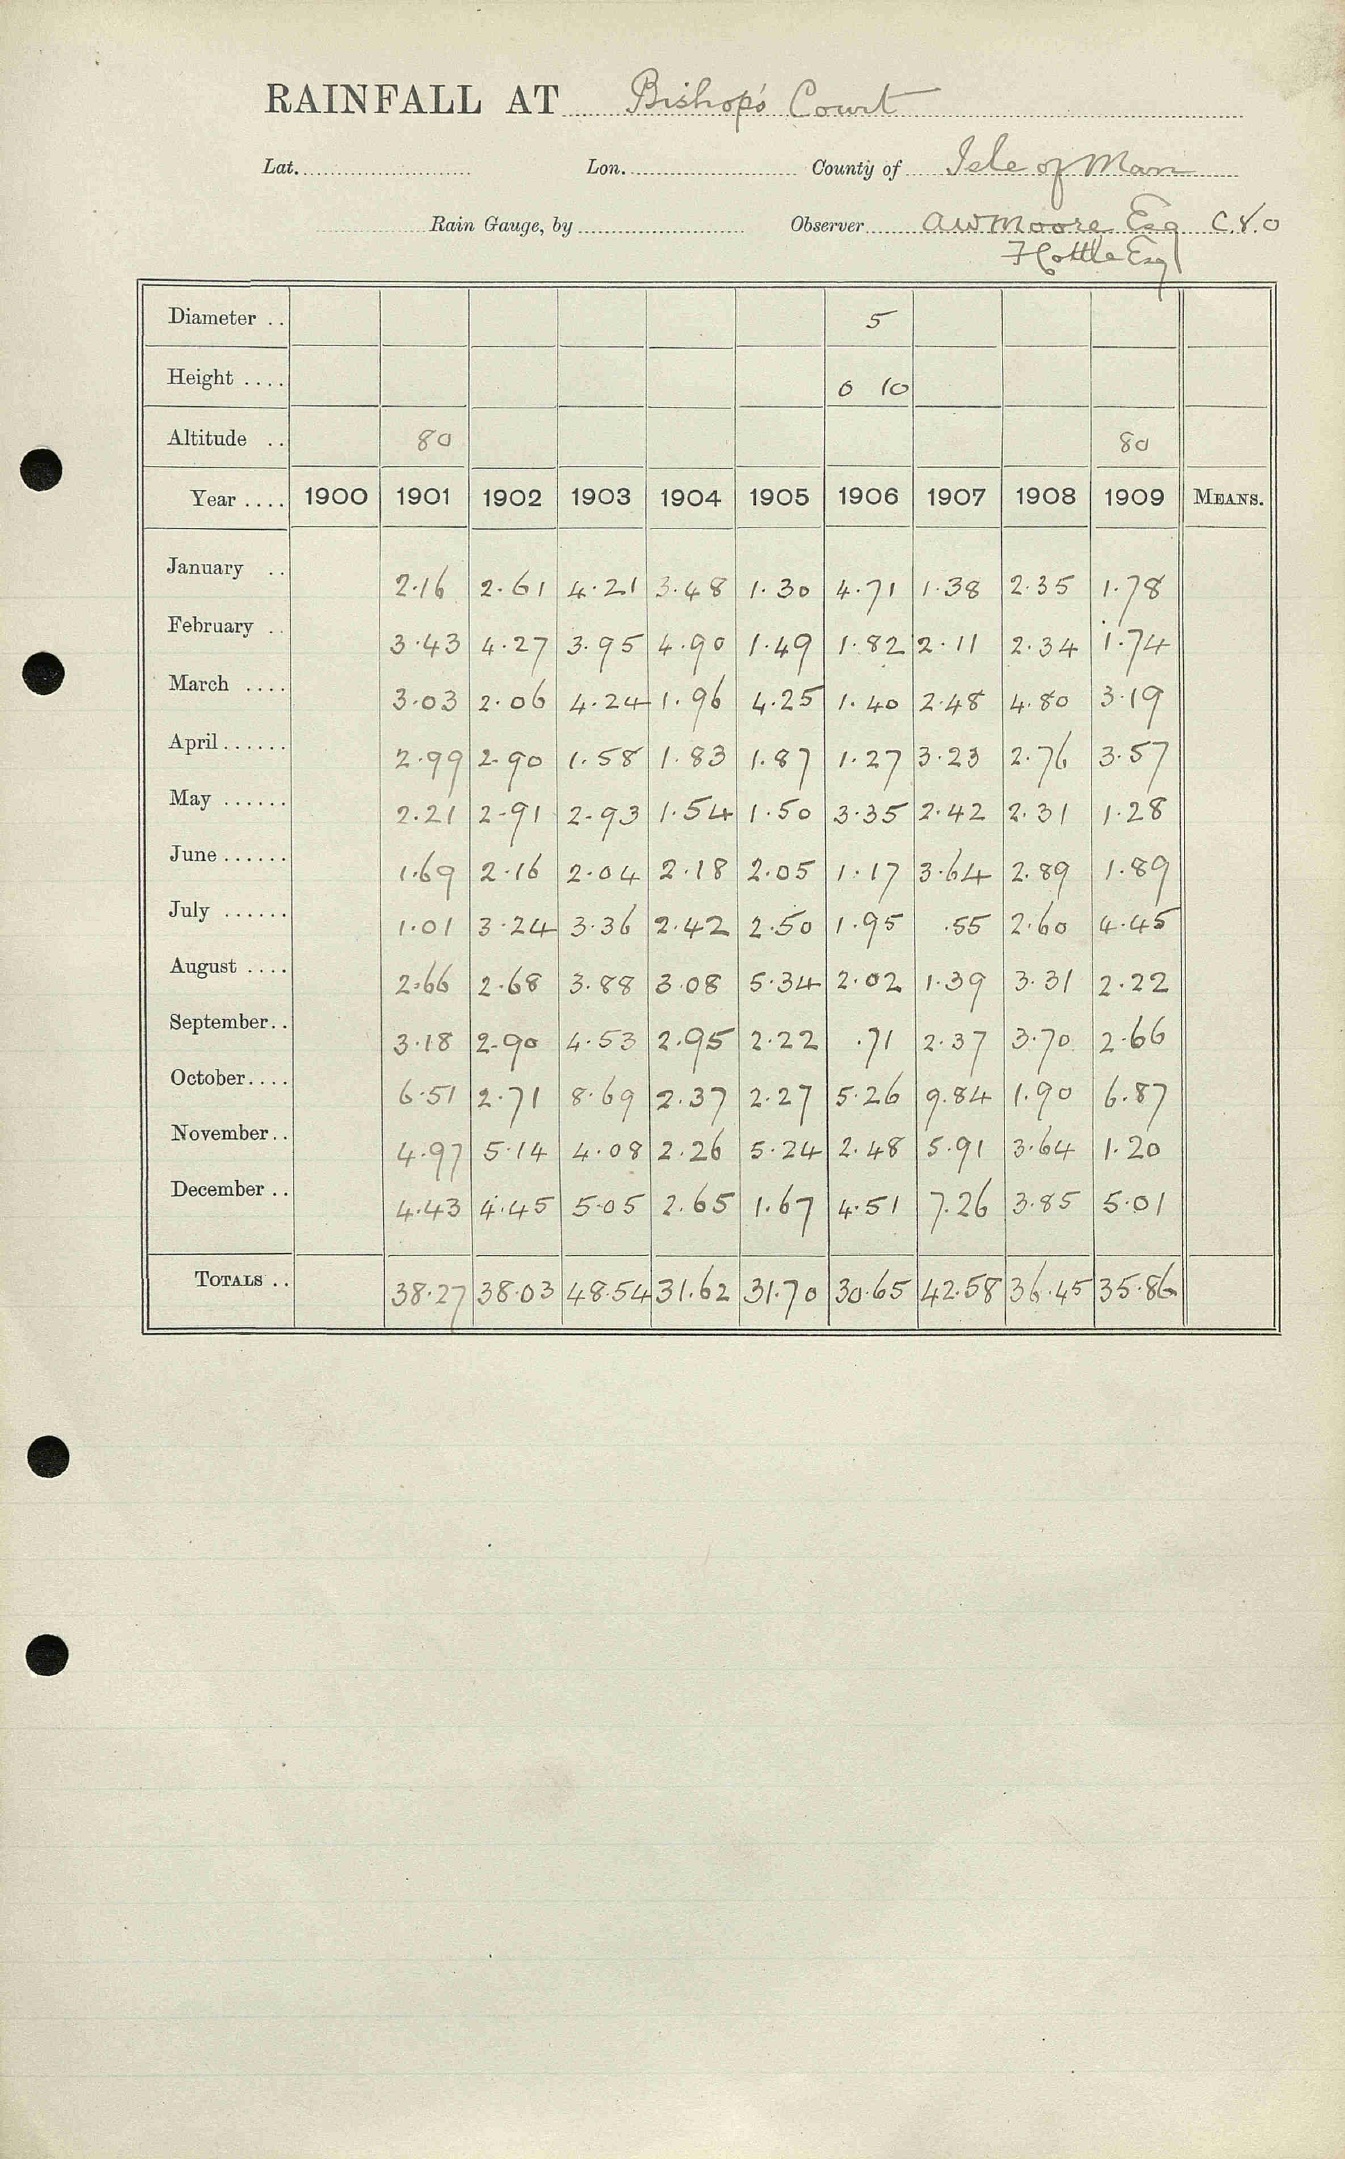 RAINFALL AT Bishop's Court
Lat. Lon. County of Isle of Man
Rain Gauge, by Observer A W Moore Esq
Esq
Diameter .. 5
Height .... 0 10
Altitude .. 80 80
Year .... 1900 1901 1902 1903 1904 1905 1906 1907 1908 1909 MEANS.
January .. 2.16 2.61 4.21 3.48 1.30 4.71 1.38 2.35 1.78
February .. 3.43 4.27 3.95 4.90 1.49 1.82 2.11 2.34 1.74
March .... 3.03 2.06 4.24 1.96 4.25 1.40 2.48 4.80 3.19
April...... 2.99 2.90 1.58 1.83 1.87 1.27 3.23 2.76 3.57
May ...... 2.21 2.91 2.93 1.54 1.50 3.35 2.42 2.31 1.28
June...... 1.69 2.16 2.04 2.18 2.05 1.17 3.64 2.89 1.89
July ...... 1.01 3.24 3.36 2.42 2.50 1.95 .55 2.60 4.45
August .... 2.66 2.68 3.88 3.08 5.34 2.02 1.39 3.31 2.22
September.. 3.18 2.90 4.53 2.95 2.22 .71 2.37 3.70 2.66
October.... 6.51 2.71 8.69 2.37 2.27 5.26 9.84 1.90 6.87
November.. 4.97 5.14 4.08 2.26 5.24 2.48 5.91 3.64 1.20
December .. 4.43 4.45 5.05 2.65 1.67 4.51 7.26 3.85 5.01
TOTALS .. 38.27 38.03 48.54 31.62 31.70 30.65 42.58 36.45 35.86